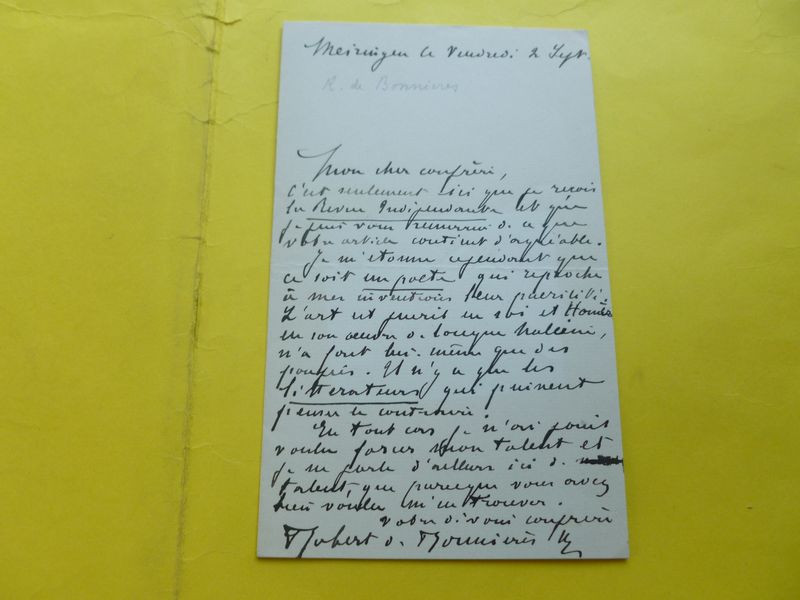 Meiringen le Vendredi 2 Sept.
R. de Bonnieres
Mon cher confrère,
C'est seulement ici que je reçois
la Revue Indépendante et que
je puis vous remercier de ce que
votre article contient d'agréable.
Je m'étonne cependant que
ce soit un poète qui reproche
à mes inventions leur puérilité.
L'art est puéril en soi et Homère
en son œuvre de
n'a fait lui-même que des
poupées. Il n'y a que les
littérateurs qui puissent
penser le contraire.
En tout cas je n'ai point
voulu forcer mon talent et
je ne parle d'ailleurs ici de
talent, que parce que vous avez
bien voulu m'en trouver.
votre dévoué confrère
Robert de Bonnières